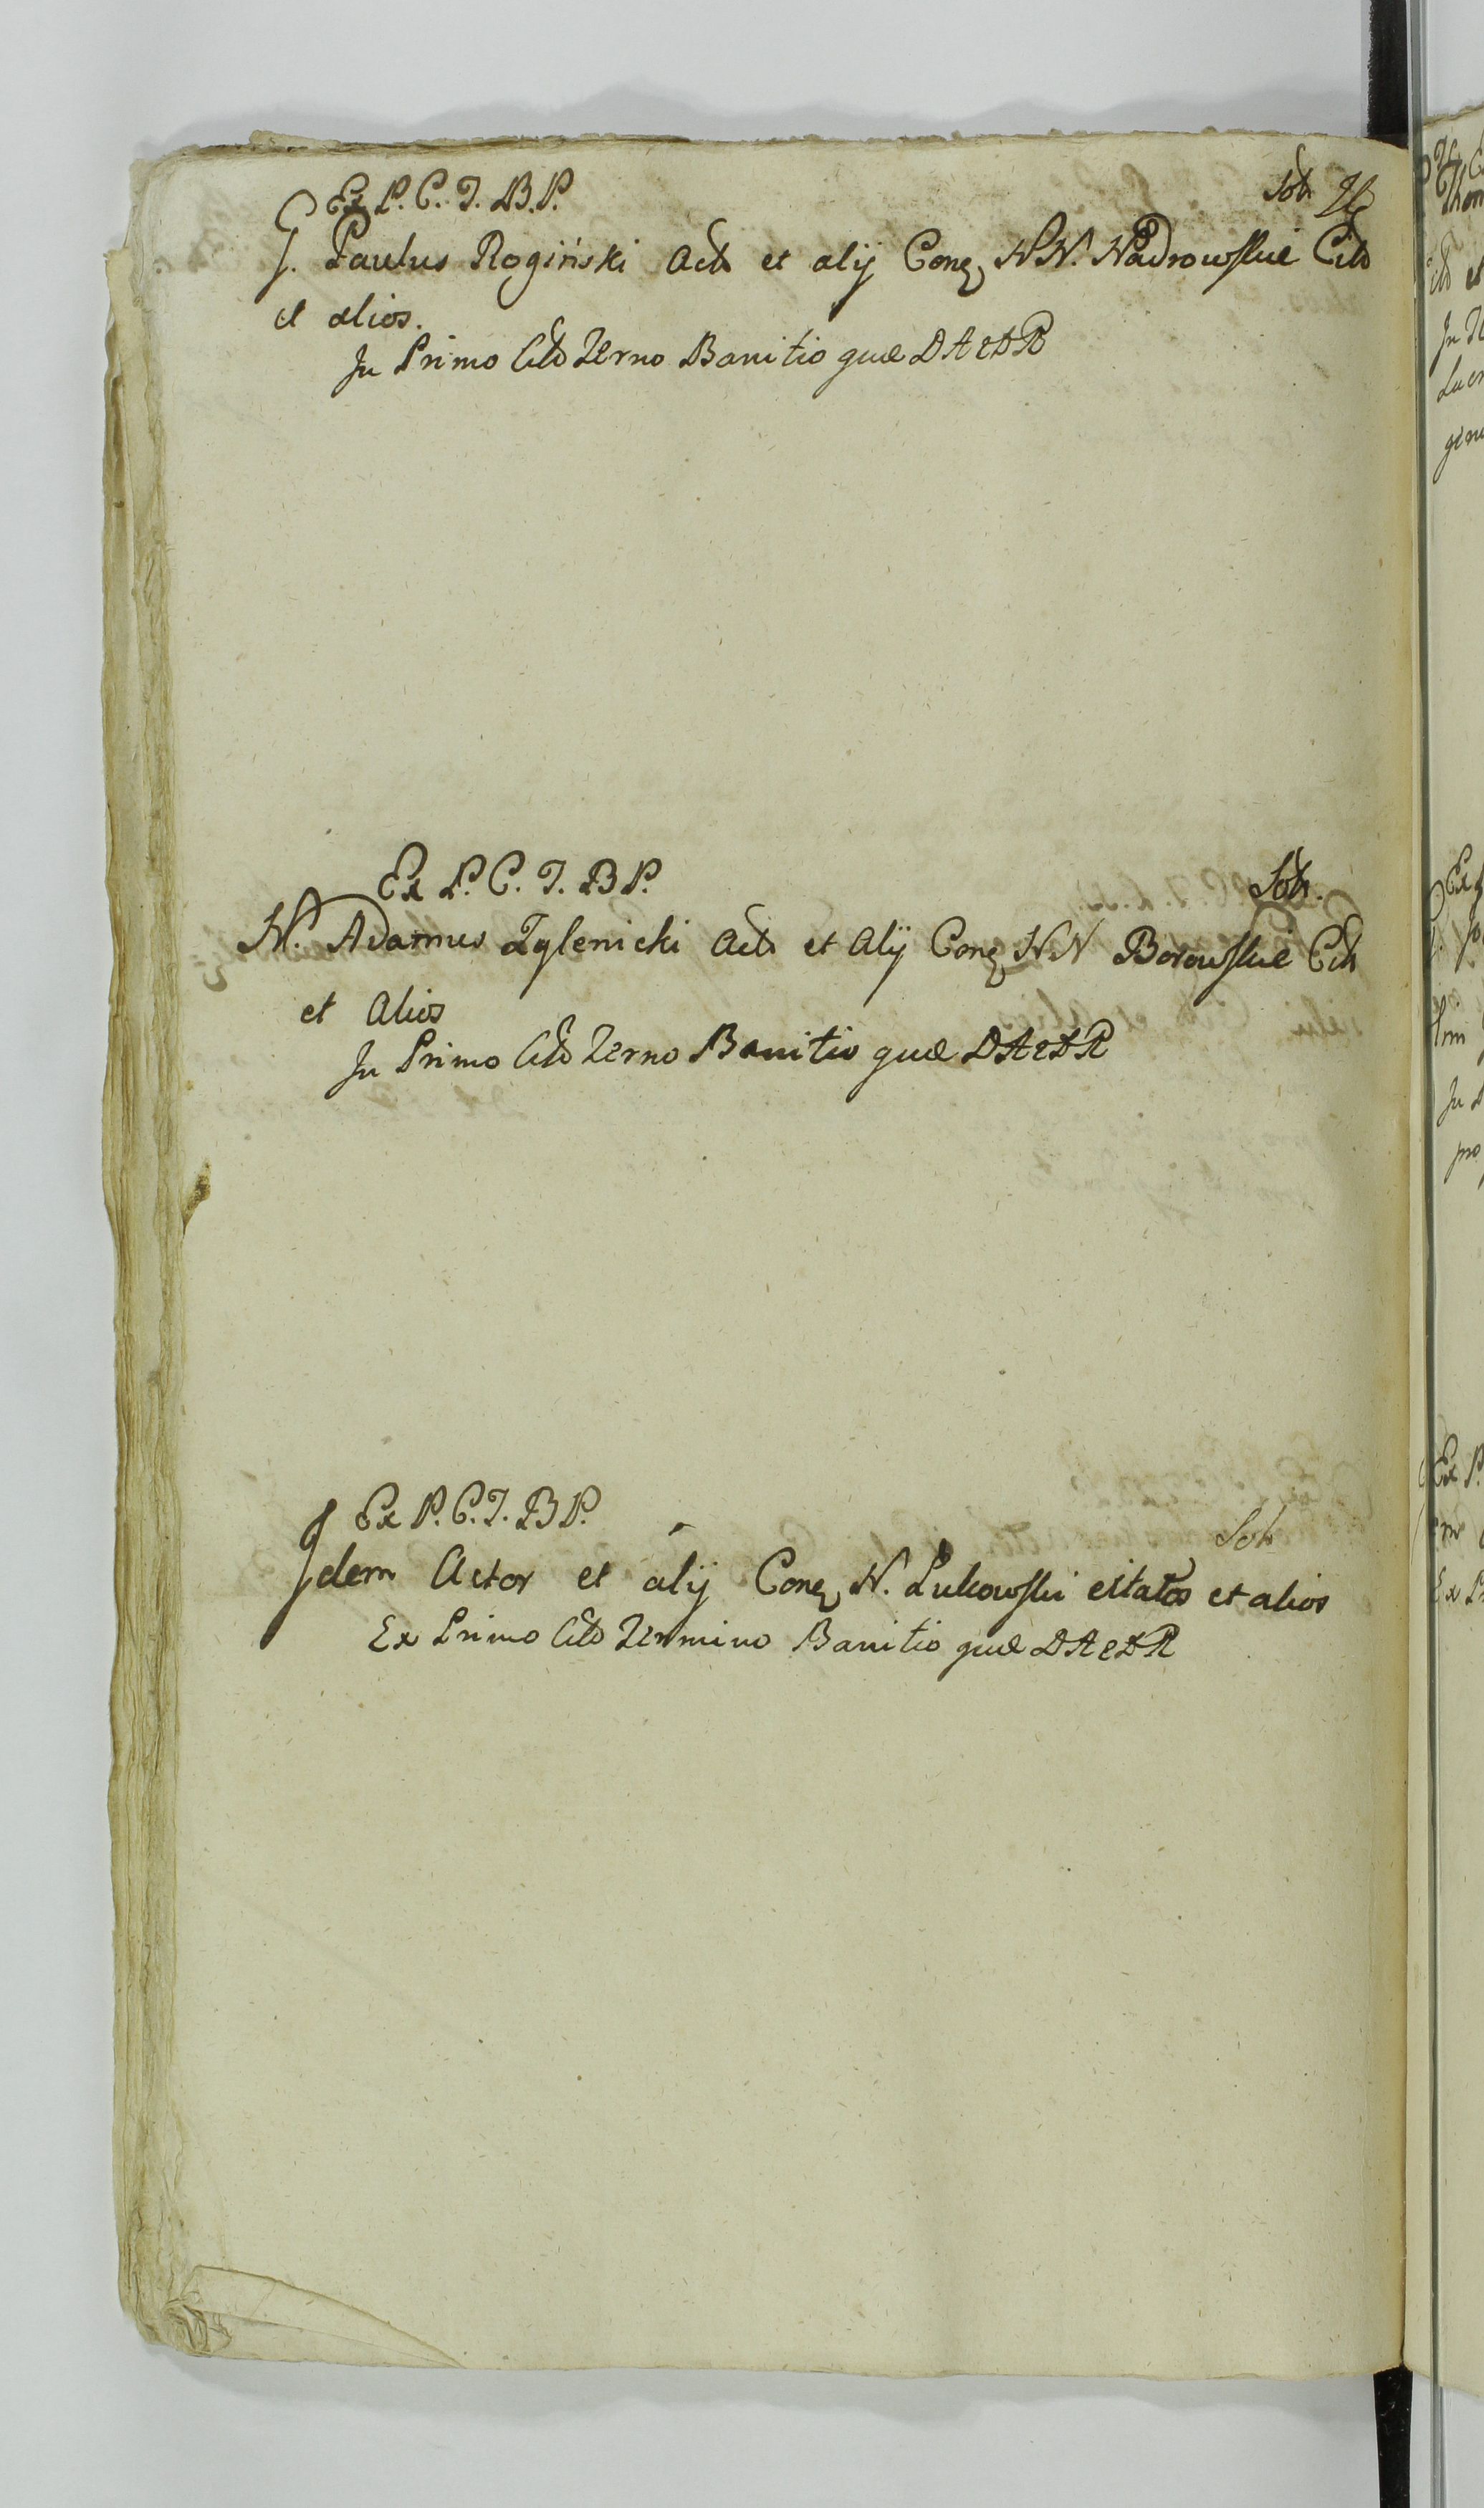 Ex P. C. T. B. P. Sol.
G. Paulus Rogiński Act et alij Conq NN. Nadrowskie Citt
et alios.
In Primo Citt Terno Banitio quæ D A e D R
Ex P. C. T. B P. Sol.
N. Adamus Zglenicki Act et Alij Conq NN Borowskie Citt
et Alios
In Primo Citt Terno Banitio quæ D A e D R
Ex P. C. T. B P. Sol
Idem Actor et alij Conq N. Lukowski citatos et alios
Ex Primo Citt Termino Banitio quæ D A e D R